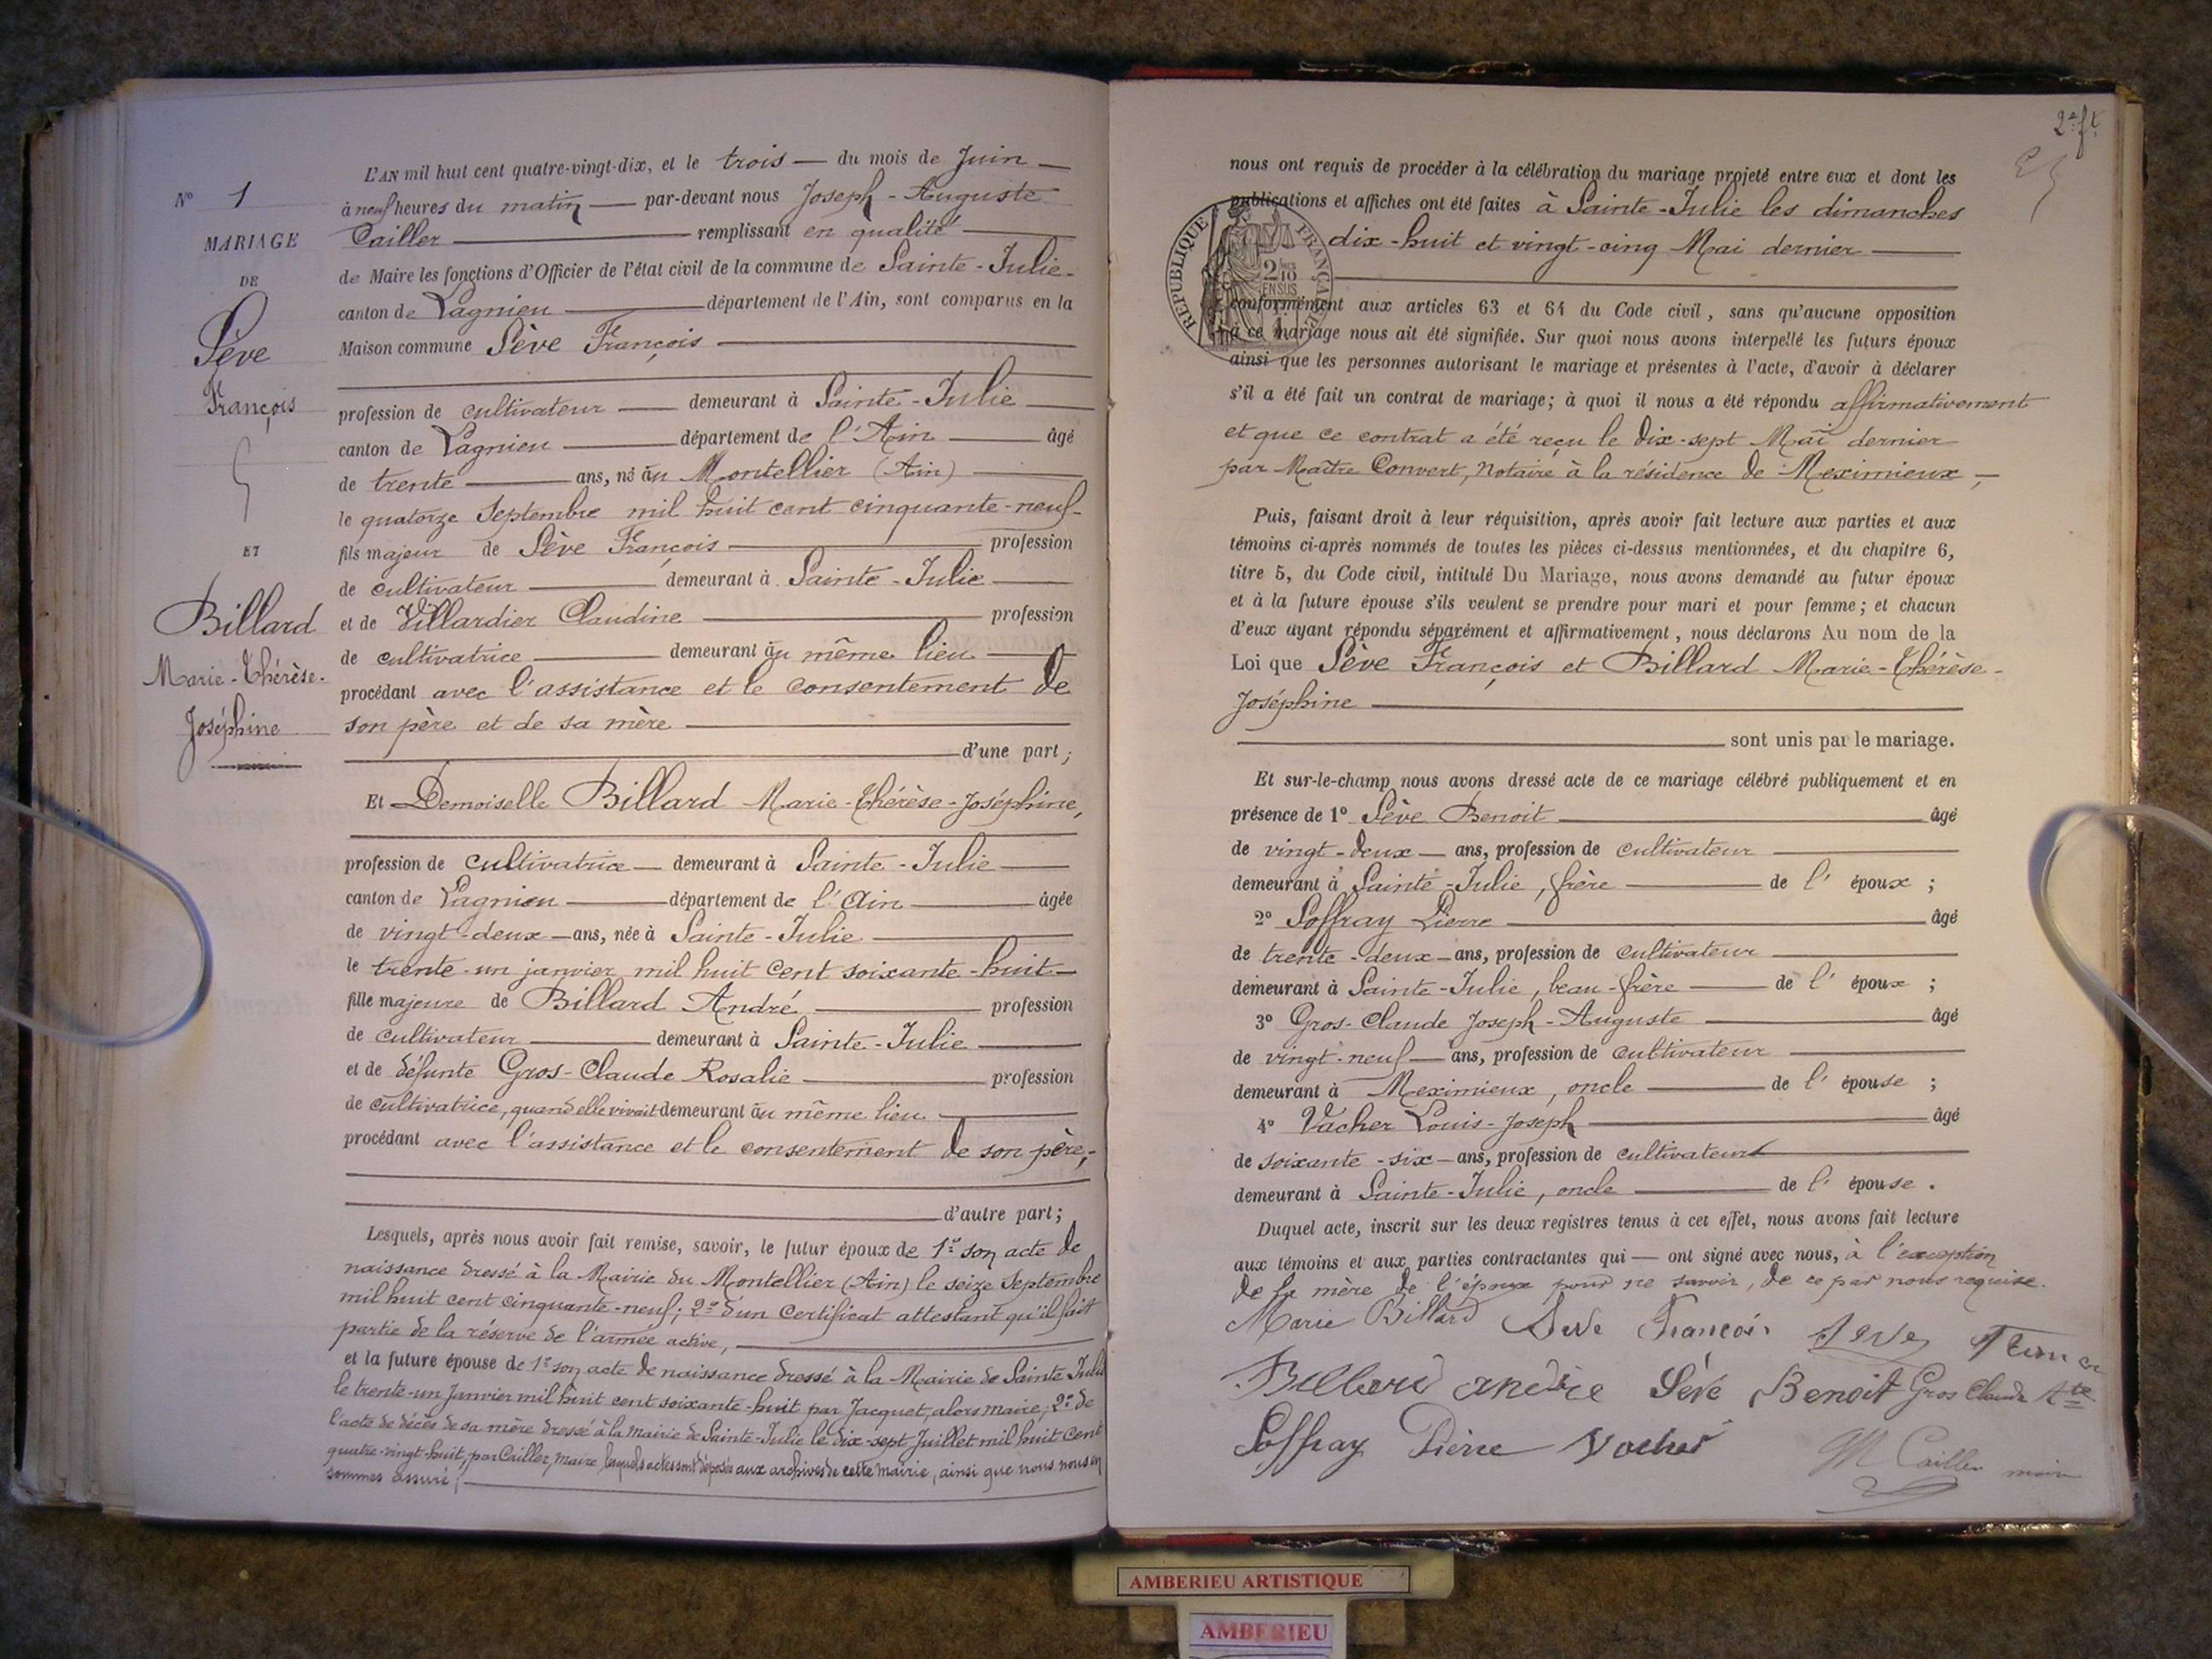 N° 1
MARIAGE
DE
Sève
François
ET
Billard
Marie-Thérèse-
Joséphine
L'AN mil huit cent quatre-vingt-dix, et le trois du mois de Juin
à neuf heures du matin par-devant nous Joseph-Auguste
Cailler remplissant en qualité
de Maire les fonctions d'Officier de l'état civil de la commune de Sainte-Julie
canton de Lagnieu département de l'Ain, sont comparus en la
Maison commune Sève François
profession de cultivateur demeurant à Sainte-Julie
canton de Lagnieu département de l'Ain âgé
de trente ans, né au Montellier (Ain)
le quatorze Septembre mil huit cent cinquante-neuf
fils majeur de Sève François profession
de cultivateur demeurant à Sainte-Julie
et de Villardier Claudine profession
de cultivatrice demeurant au même lieu
procédant avec l'assistance et le consentement de
son père et de sa mère
d'une part;
Et Demoiselle Billard Marie-Thérèse-Joséphine,
profession de cultivatrice demeurant à Sainte-Julie
canton de Lagnieu département de l'Ain âgée
de vingt-deux ans, née à Sainte-Julie
le trente-un janvier mil huit cent soixante-huit
fille majeure de Billard André profession
de cultivateur demeurant à Sainte-Julie
et de défunte Gros-Claude Rosalie profession
de cultivatrice, quand elle vivait demeurant au même lieu
procédant avec l'assistance et le consentement de son père,
d'autre part;
Lesquels, après nous avoir fait remise, savoir, le futur époux de 1° son acte de
naissance dressé à la Mairie du Montellier (Ain) le seize Septembre
mil huit cent cinquante-neuf; 2° d'un Certificat attestant qu'il fait
partie de la réserve de l'armée active,
et la future épouse de 1° son acte de naissance dressé à la Mairie de Sainte Julie
le trente-un Janvier mil huit cent soixante-huit par Jacquet, alors maire; 2° de
l'acte de décès de sa mère dressé à la mairie de Sainte-Julie le dix-sept Juillet mil huit cent
quatre-vingt-huit, par Cailler, maire, lesquels actes sont déposés aux archives de cette mairie, ainsi que nous nous en
sommes assuré;
2e ft
nous ont requis de procéder à la célébration du mariage projeté entre eux et dont les
publications et affiches ont été faites à Sainte-Julie les dimanches
dix-huit et vingt-cinq Mai dernier
RÉPUBLIQUE FRANÇAISE
conformément aux articles 63 et 64 du Code civil, sans qu'aucune opposition
à ce mariage nous ait été signifiée. Sur quoi nous avons interpellé les futurs époux
ainsi que les personnes autorisant le mariage et présentes à l'acte, d'avoir à déclarer
s'il a été fait un contrat de mariage; à quoi il nous a été répondu affirmativement
et que ce contrat a été reçu le dix-sept Mai dernier
par Maître Convert, Notaire à la résidence de Meximieux,
Puis, faisant droit à leur réquisition, après avoir fait lecture aux parties et aux
témoins ci-après nommés de toutes les pièces ci-dessus mentionnées, et du chapitre 6,
titre 5, du Code civil, intitulé Du Mariage, nous avons demandé au futur époux
et à la future épouse s'ils veulent se prendre pour mari et pour femme; et chacun
d'eux ayant répondu séparément et affirmativement, nous déclarons Au nom de la
Loi que Sève François et Billard Marie-Thérèse-
Joséphine
sont unis par le mariage.
Et sur-le-champ nous avons dressé acte de ce mariage célébré publiquement et en
présence de 1° Sève Benoit âgé
de vingt-deux ans, profession de cultivateur
demeurant à Sainte-Julie, frère de l'époux;
2° Soffray Pierre âgé
de trente-deux ans, profession de cultivateur
demeurant à Sainte-Julie, beau-frère de l'époux;
3° Gros-Claude Joseph-Auguste âgé
de vingt-neuf ans, profession de cultivateur
demeurant à Meximieux, oncle de l'épouse;
4° Vacher Louis-Joseph âgé
de soixante-six ans, profession de cultivateur
demeurant à Sainte-Julie, oncle de l'épouse.
Duquel acte, inscrit sur les deux registres tenus à cet effet, nous avons fait lecture
aux témoins et aux parties contractantes qui ont signé avec nous, à l'exception
de la mère de l'époux pour ne savoir, de ce par nous requise.
Marie Billard Seve François Seve
Billard andré Sève Benoit Gros Claude Ate
Soffray Pierre Vacher
Cailler maire
AMBERIEU ARTISTIQUE
AMBERIEU